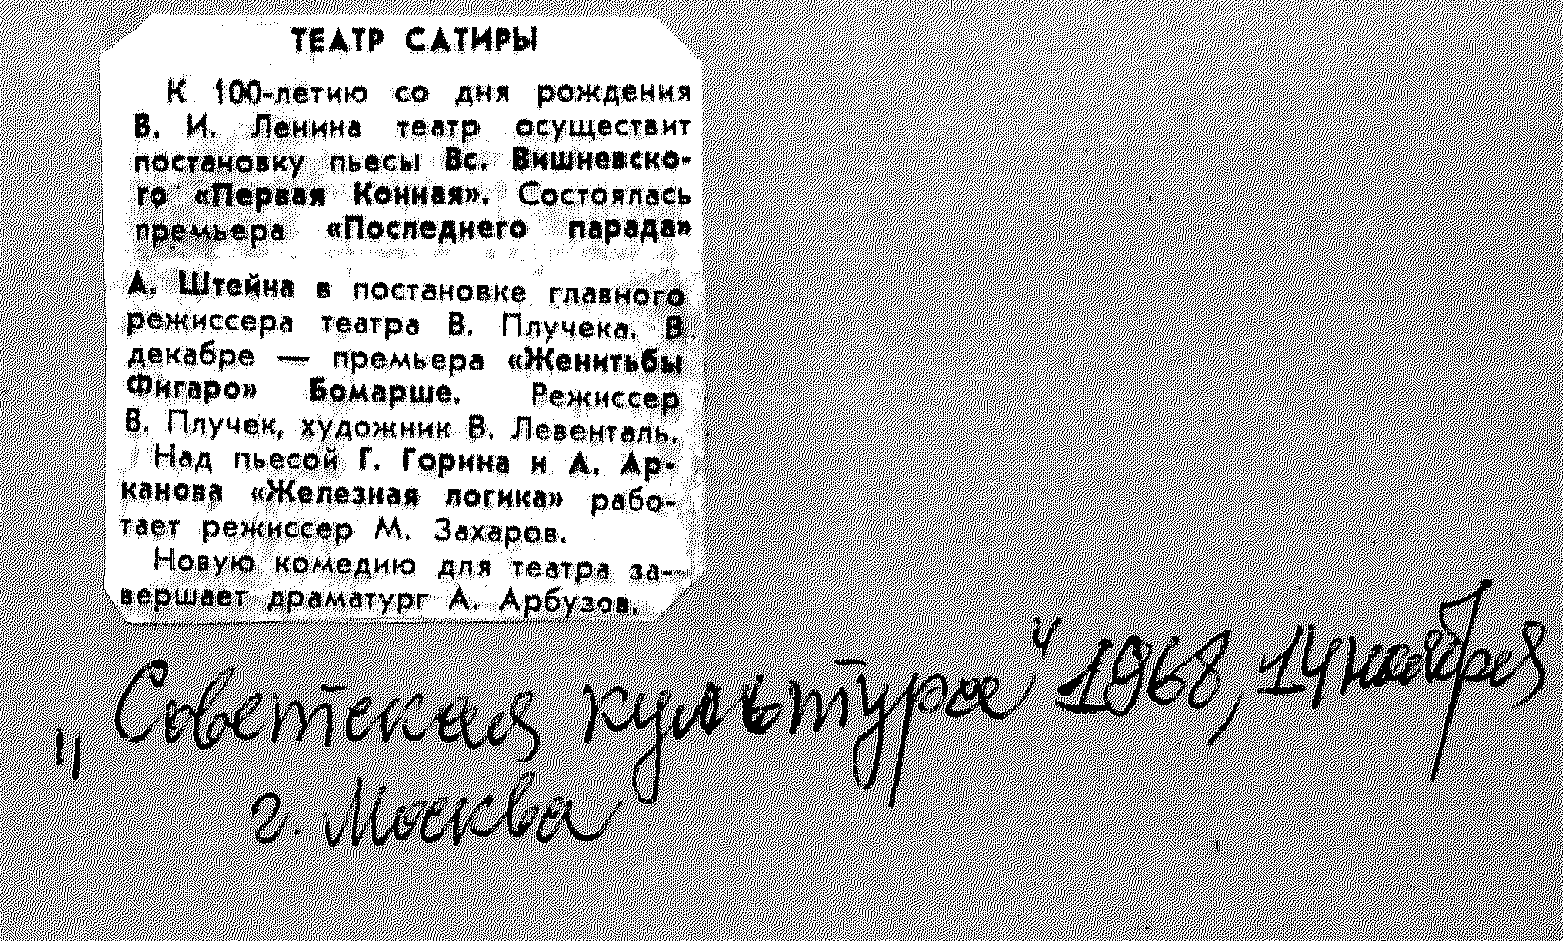 ТЕАТР САТИРЫ
К 100-летию со дня рождения
В. И. Ленина театр осуществит
постановку пьесы Вс. Вишневско-
го «Первая Конная». Состоялась
премьера «Последнего парада»
А. Штейна в постановке главного
режиссера театра В. Плучека. В
декабре — премьера «Женитьбы
Фигаро» Бомарше. Режиссер
В. Плучек, художник В. Левенталь.
Над пьесой Г. Горина и А. Ар-
канова «Железная логика» рабо-
тает режиссер М. Захаров.
Новую комедию для театра за-
вершает драматург А. Арбузов.
„Советская культура" 1968, 14 ноября
г. Москва